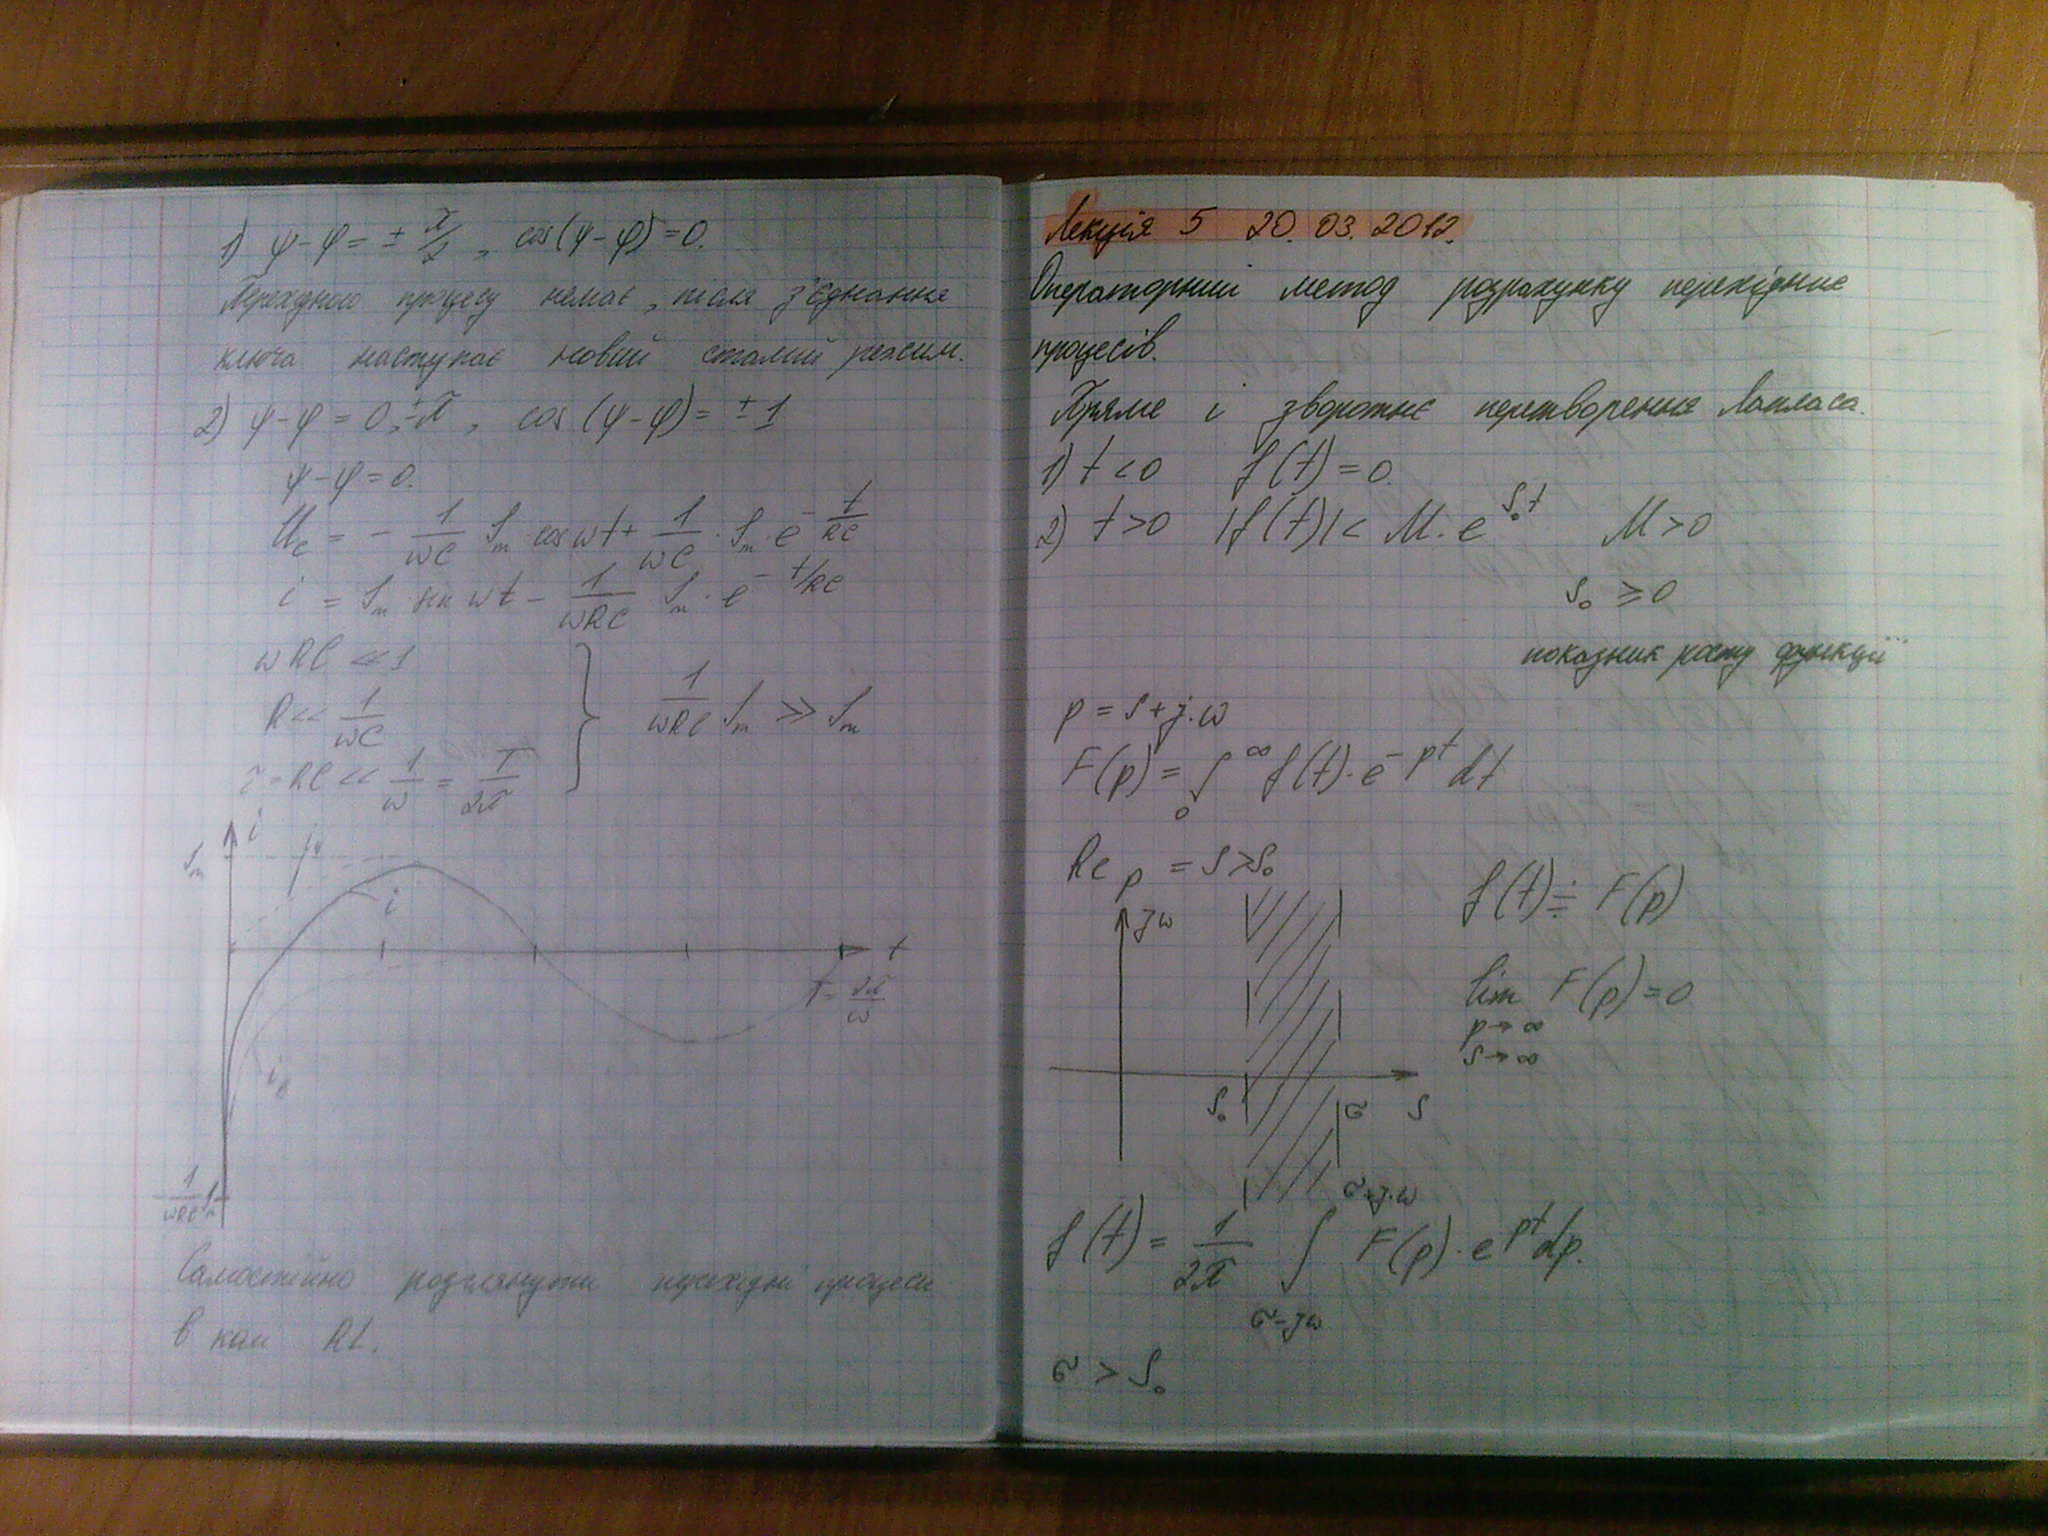 1) ψ-φ = ± π/2, cos(ψ-φ) = 0.
Перехідного процесу немає, після з'єднання
ключа наступає новий сталий режим.
2) ψ-φ = 0, ±π, cos(ψ-φ) = ±1
ψ-φ = 0.
U_c = - 1/ωC I_m · cos ωt + 1/ωC · I_m · e^(-t/RC)
i = I_m · sin ωt - 1/ωRC I_m · e^(-t/RC)
ωRC ≪ 1
R << 1/ωC
1/ωRC I_m ≫ I_m
τ = RC << 1/ω = T/2π
i
I_m
i
t
T = 2π/ω
i_в
-1/ωRC I_m
Самостійно розглянути перехідні процеси
в колі RL.
Лекція 5 20.03.2012.
Операторний метод розрахунку перехідних
процесів.
Пряме і зворотнє перетворення Лапласа.
1) t < 0 f(t) = 0.
2) t > 0 |f(t)| < M · e^(S₀t) M > 0
S₀ ≥ 0
показник росту функції
p = S + j·ω
F(p) = ∫₀^∞ f(t) · e^(-pt) dt
Re p = S > S₀
jω
f(t) ≑ F(p)
lim F(p) = 0
p→∞
S→∞
S₀ σ S
f(t) = 1/2π ∫_(σ-jω)^(σ+j·ω) F(p) · e^(pt) dp.
σ > S₀